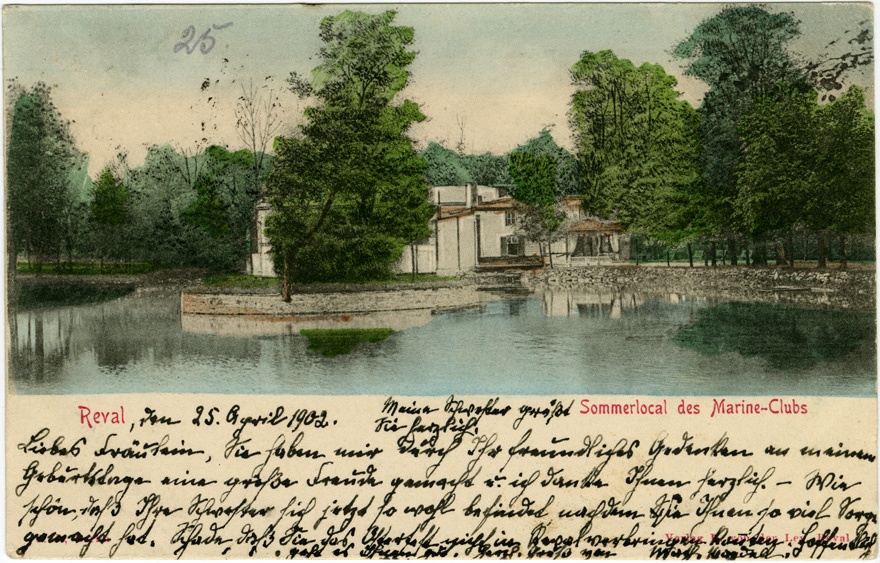 25.
Reval, den 25. April 1902.
Meine Schwester grüßt
Sie herzlich.
Sommerlocal des Marine-Clubs
Liebes Fräulein, Sie haben mir durch Ihr freundliches Gedenken an meinem
Geburtstage eine große Freude gemacht u. ich danke Ihnen herzlich. – Wie
schön, daß Ihre Schwester sich jetzt so wohl befindet nachdem Sie Ihnen so viel Sorge
gemacht hat. Schade, daß Sie das Osterfest nicht in Reval verbringen konnten, hoffentlich
geht es Ihnen gut. Herzl. Gruß von
Verlag Reval